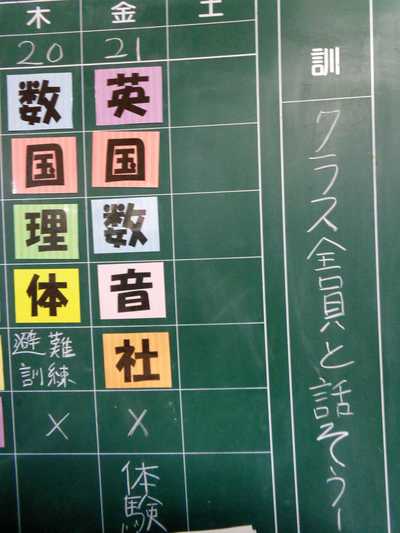 木 金 土
20 21
数 英
国 国
理 数
体 音
避難 社
訓練
× ×
体験
訓
クラス全員と話そう